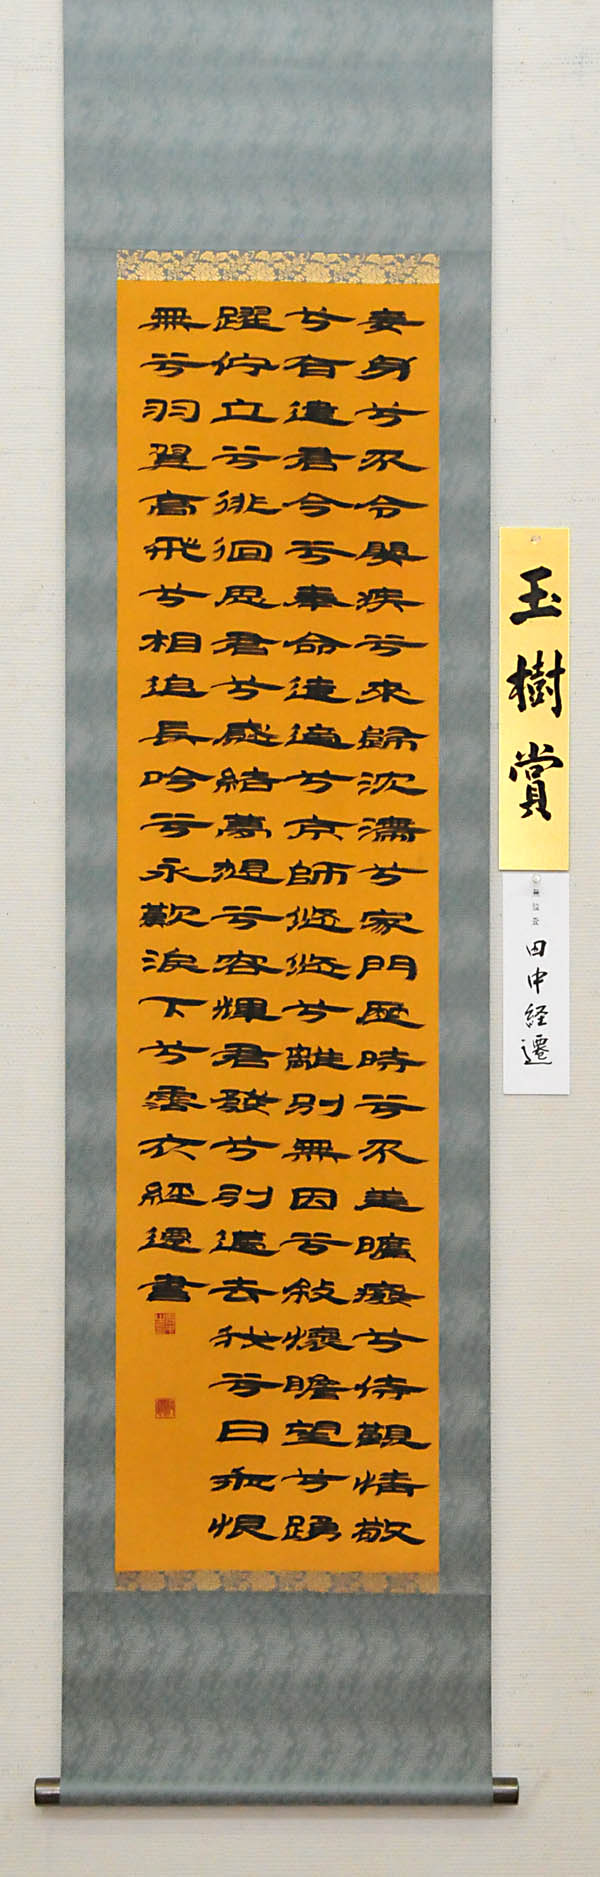 妾身兮不令嬰疾兮來歸沈滯兮家門歷時兮不差曠廢兮侍覲情敬
兮有違君今兮奉命遠適兮京師悠悠兮離別無因兮敘懷瞻望兮踊
躍佇立兮徘徊思君兮感結夢想兮容輝君發兮引邁去我兮日乖恨
無兮羽翼高飛兮相追長吟兮永歎淚下兮霑衣經遷書
玉樹賞
無鑑査
田中経遷